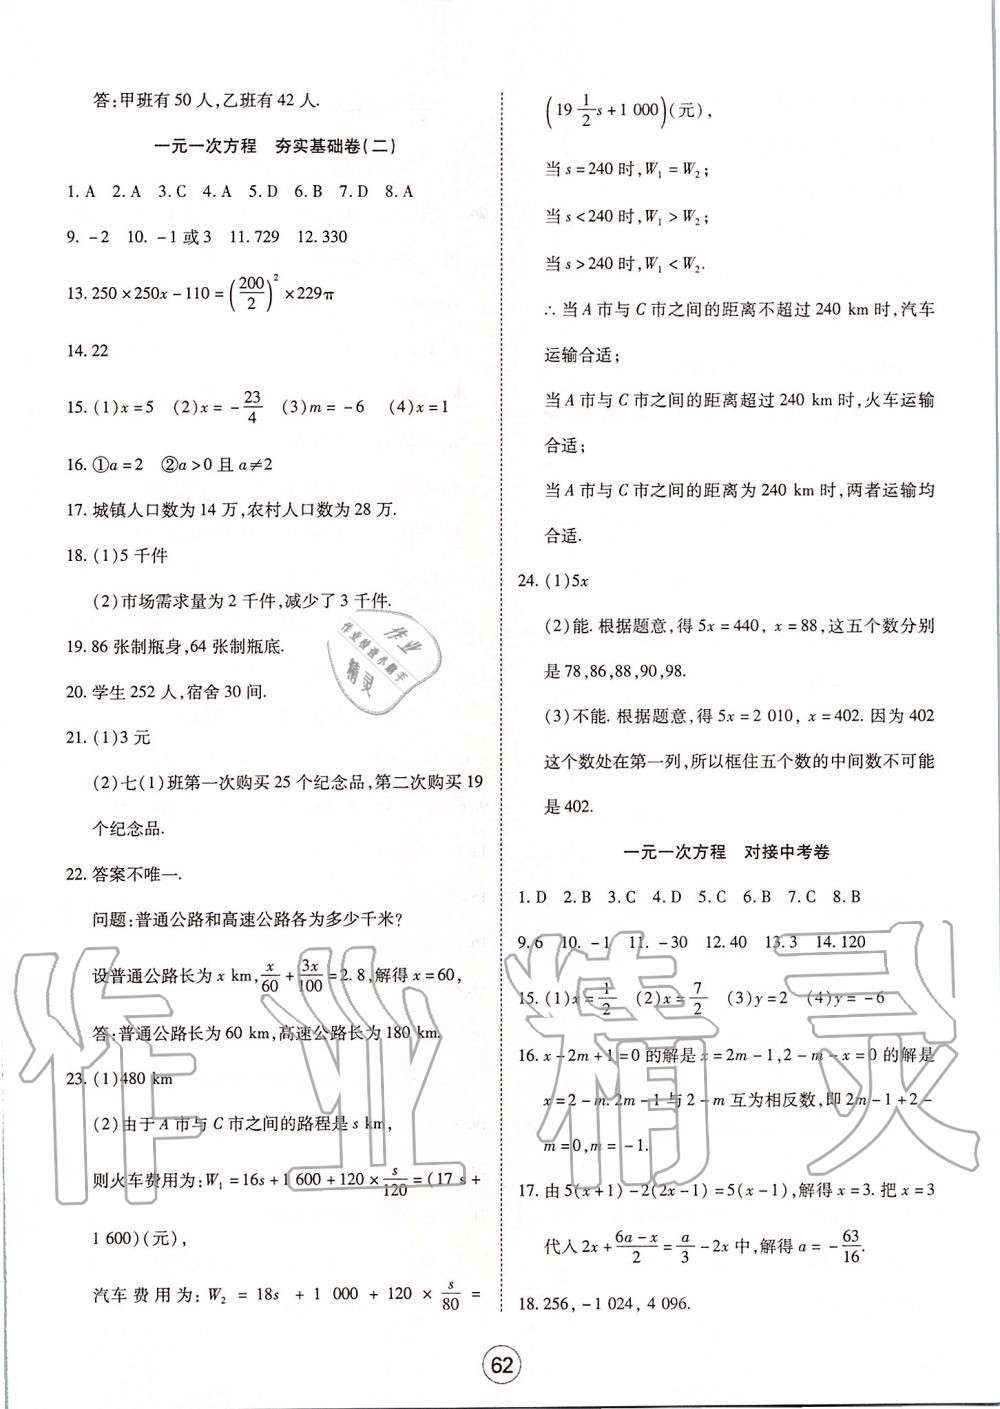 答:甲班有50人,乙班有42人.
一元一次方程 夯实基础卷(二)
1. A 2. A 3. C 4. A 5. D 6. B 7. D 8. A
9. -2 10. -1或3 11. 729 12. 330
13. 250×250x-110=(200/2)²×229π
14. 22
15. (1)x=5 (2)x=-23/4 (3)m=-6 (4)x=1
16. ①a=2 ②a>0且a≠2
17. 城镇人口数为14万,农村人口数为28万.
18. (1)5千件
(2)市场需求量为2千件,减少了3千件.
19. 86张制瓶身,64张制瓶底.
20. 学生252人,宿舍30间.
21. (1)3元
(2)七(1)班第一次购买25个纪念品,第二次购买19
个纪念品.
22. 答案不唯一.
问题:普通公路和高速公路各为多少千米?
设普通公路长为x km,x/60+3x/100=2.8,解得x=60,
答:普通公路长为60 km,高速公路长为180 km.
23. (1)480 km
(2)由于A市与C市之间的路程是s km,
则火车费用为:W₁=16s+1 600+120×s/120=(17s+
1 600)(元),
汽车费用为:W₂=18s+1 000+120×s/80=
(19 1/2 s+1 000)(元),
当s=240时,W₁=W₂;
当s<240时,W₁>W₂;
当s>240时,W₁<W₂.
∴当A市与C市之间的距离不超过240 km时,汽车
运输合适;
当A市与C市之间的距离超过240 km时,火车运输
合适;
当A市与C市之间的距离为240 km时,两者运输均
合适.
24. (1)5x
(2)能.根据题意,得5x=440, x=88,这五个数分别
是78,86,88,90,98.
(3)不能.根据题意,得5x=2 010, x=402.因为402
这个数处在第一列,所以框住五个数的中间数不可能
是402.
一元一次方程 对接中考卷
1. D 2. B 3. C 4. D 5. C 6. B 7. C 8. B
9. 6 10. -1 11. -30 12. 40 13. 3 14. 120
15. (1)x=1/2 (2)x=7/2 (3)y=2 (4)y=-6
16. x-2m+1=0的解是x=2m-1,2-m-x=0的解是
x=2-m.2m-1与2-m互为相反数,即2m-1+2-
m=0,m=-1.
17. 由5(x+1)-2(2x-1)=5(x-1),解得x=3.把x=3
代入2x+(6a-x)/2=a/3-2x中,解得a=-63/16.
18. 256, -1 024, 4 096.
62
作业
作业快速小助手
精灵
作业精灵